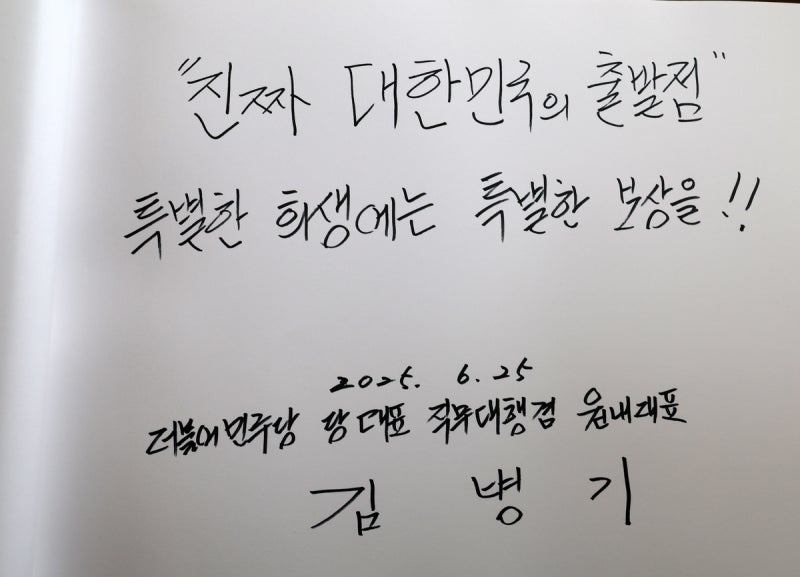 "진짜 대한민국의 출발점"
특별한 희생에는 특별한 보상을!!
2025. 6. 25
더불어민주당 당대표 직무대행겸 원내대표
김 병 기